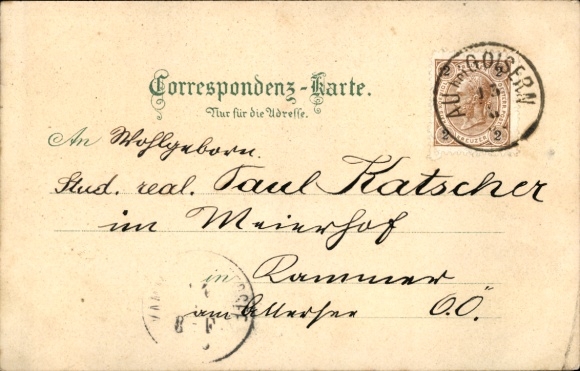 Correspondenz-Karte.
Nur für die Adresse.
AU bei GOISERN
2 2
KREUZER
2 2
An Wohlgeborn
Stud. real. Paul Katscher
im Meierhof
in Kammer
am Attersee O.Ö.